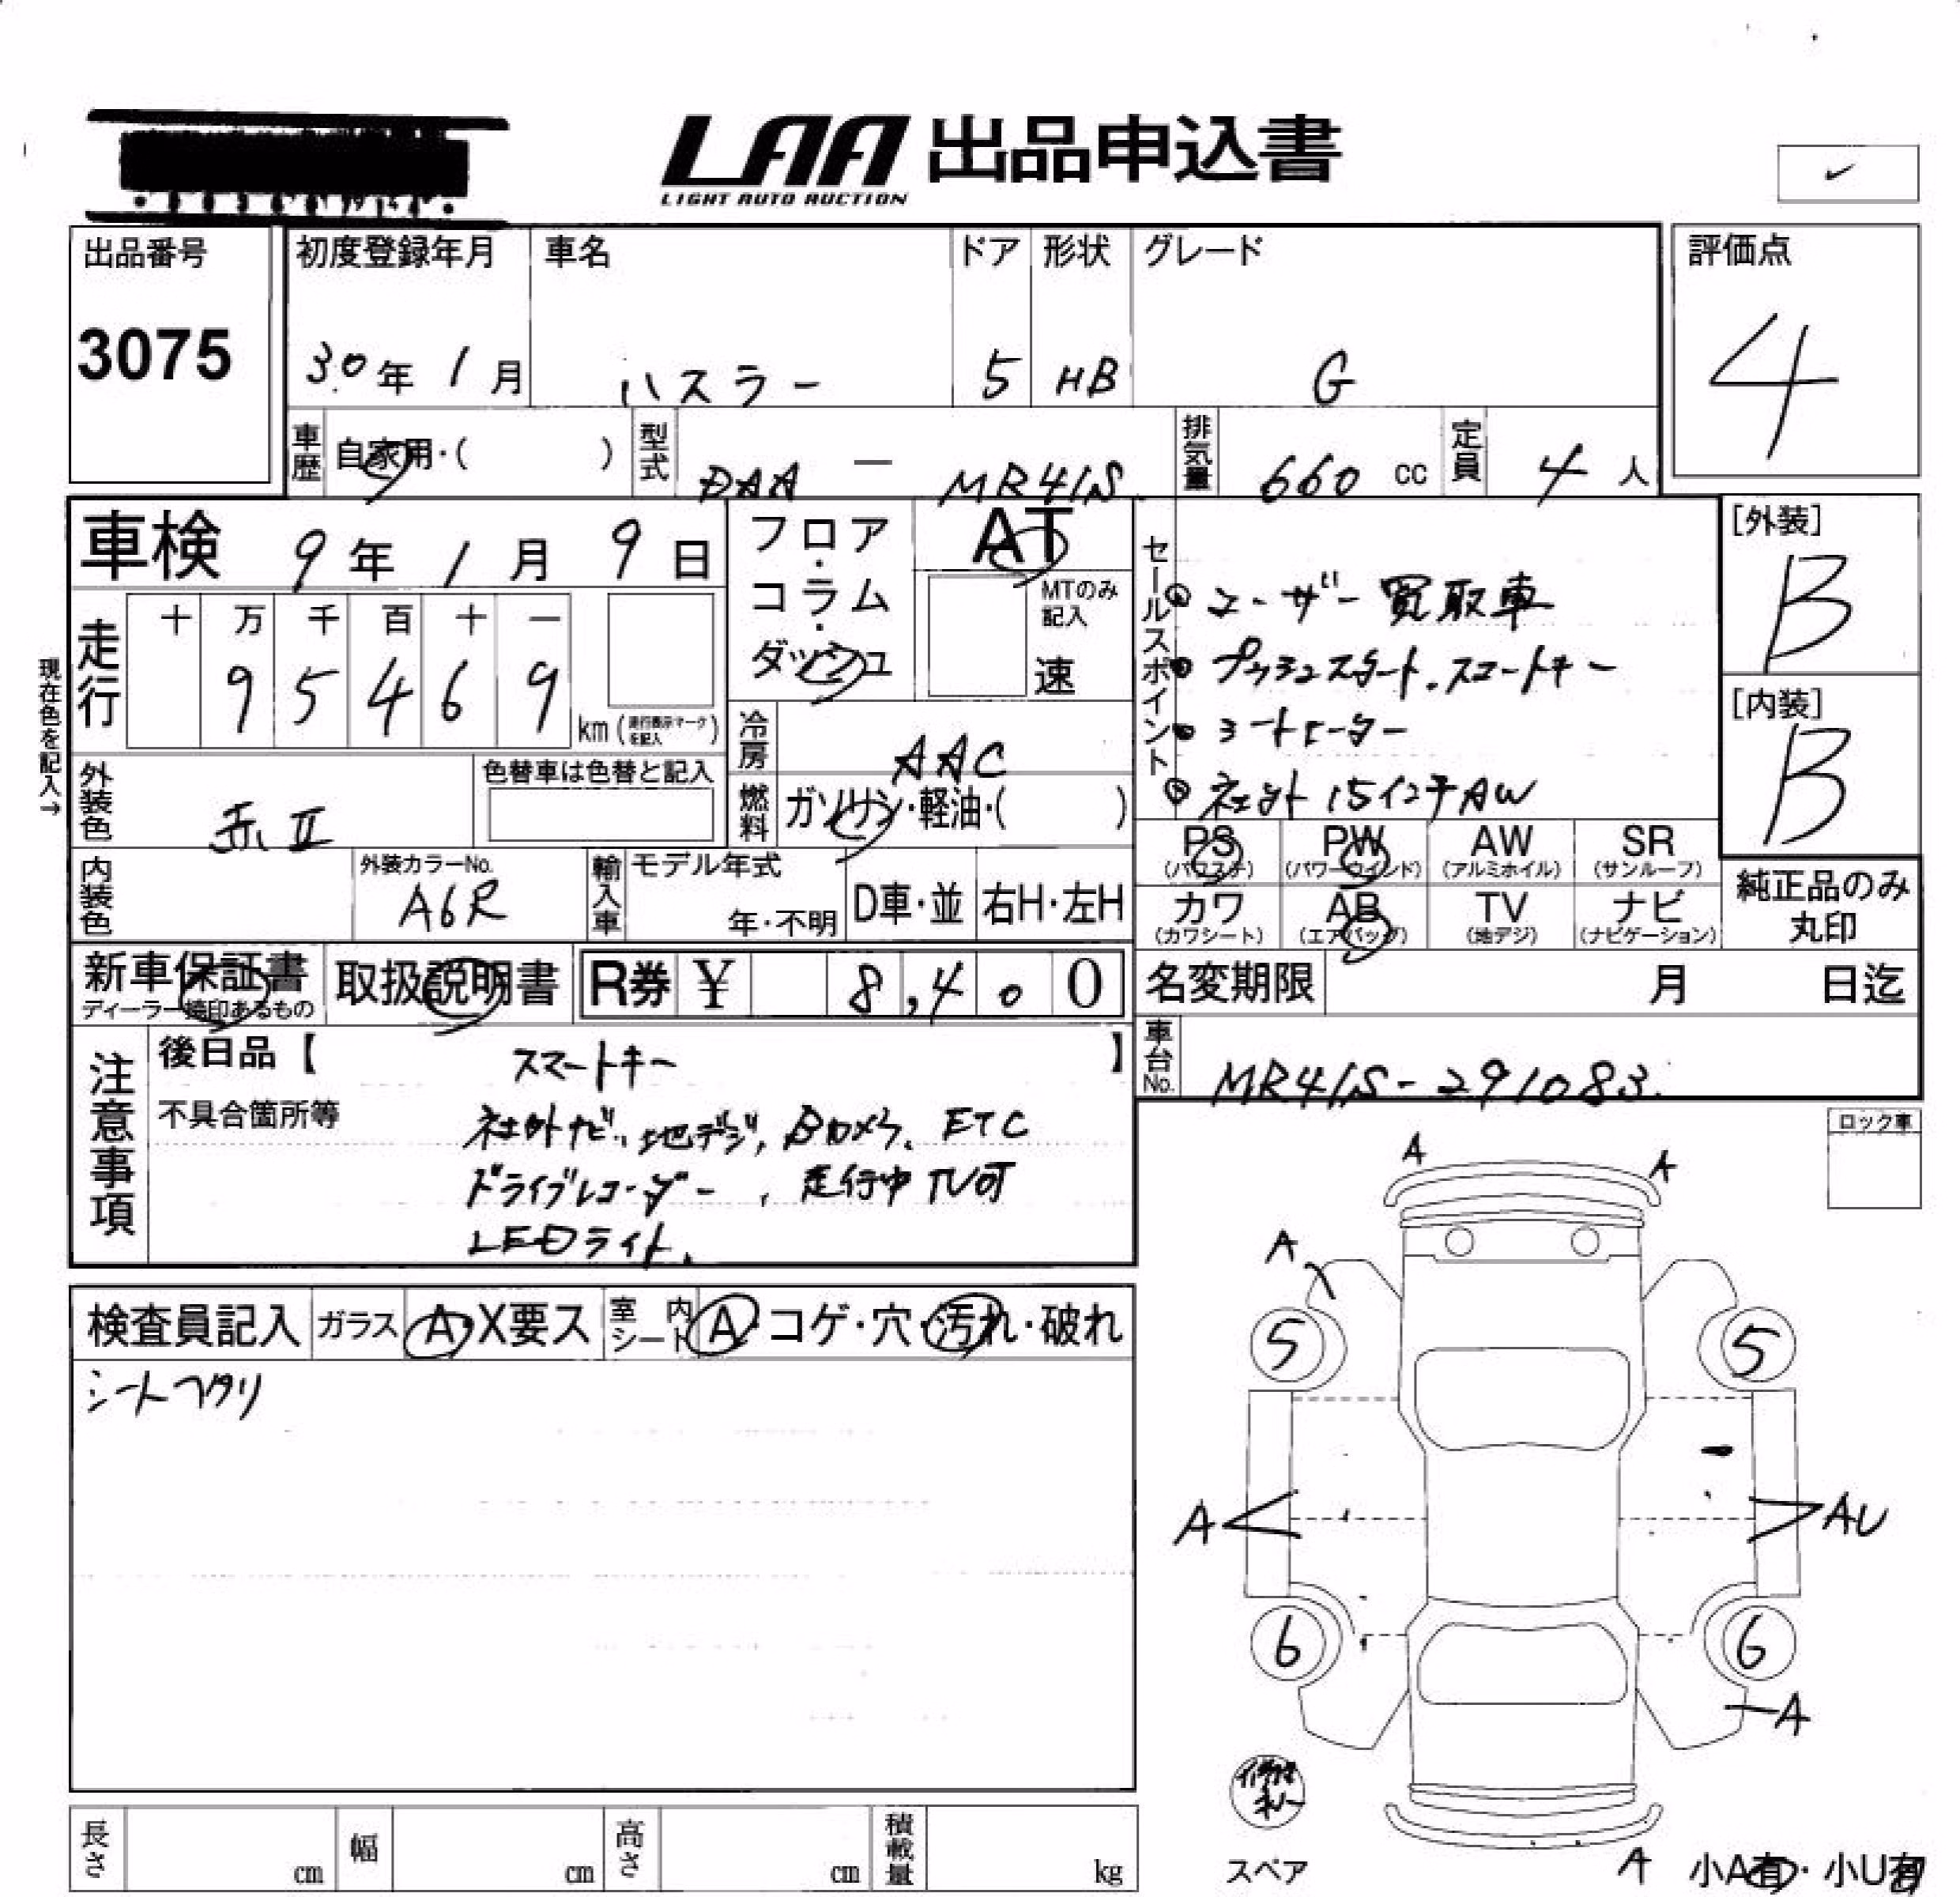 LAA 出品申込書
LIGHT AUTO AUCTION
出品番号 初度登録年月 車名 ドア 形状 グレード 評価点
3075 30年 1月 ハスラー 5 HB G 4
車歴 自家用・( ) 型式 DAA - MR41S 排気量 660 cc 定員 4人
車検 9年 1月 9日 フロア・コラム・ダッシュ AT
MTのみ記入 速
セールスポイント
ユーザー買取車
プッシュスタート.スマートキー
シートヒーター
社外15インチAW
[外装] B
[内装] B
現在色を記入→
走行 十 万 千 百 十 一
9 5 4 6 9 km (走行表示マークを記入)
冷房 AAC
外装色 赤II 色替車は色替と記入
燃料 ガソリン・軽油・( )
PS (パワステ) PW (パワーウインド) AW (アルミホイル) SR (サンルーフ)
カワ (カワシート) AB (エアバッグ) TV (地デジ) ナビ (ナビゲーション)
純正品のみ丸印
内装色 外装カラーNo. A6R 輸入車 モデル年式 年・不明 D車・並 右H・左H
新車保証書 ディーラー捺印あるもの 取扱説明書 R券 ¥ 8,400 名変期限 月 日迄
車台No. MR41S-291083.
注意事項
後日品【 スマートキー 】
不具合箇所等 社外ナビ、地デジ, Bカメラ. ETC
ドライブレコーダー , 走行中TV可
LEDライト.
ロック車
検査員記入 ガラス A・X要ス 室内シート A・コゲ・穴・汚れ・破れ
シートヘタリ
A A
A
5 5
A AU
6 6
A
修理キット
スペア
A 小A有・小U有
長さ cm 幅 cm 高さ cm 積載量 kg